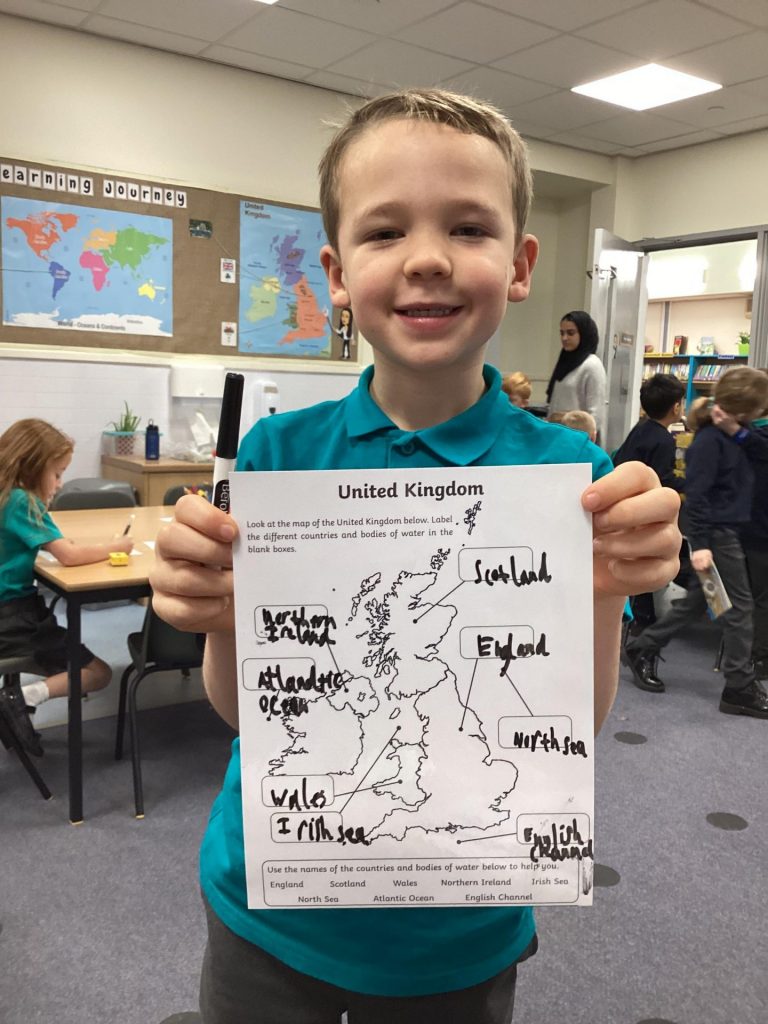 Learning Journey
United
Kingdom
World - Oceans & Continents
Berol
United Kingdom
Look at the map of the United Kingdom below. Label
the different countries and bodies of water in the
blank boxes.
Scotland
Northern
Ireland
England
Atlandtic
Ocean
North sea
Wales
Irish sea
English
Channel
Use the names of the countries and bodies of water below to help you.
England Scotland Wales Northern Ireland Irish Sea
North Sea Atlantic Ocean English Channel